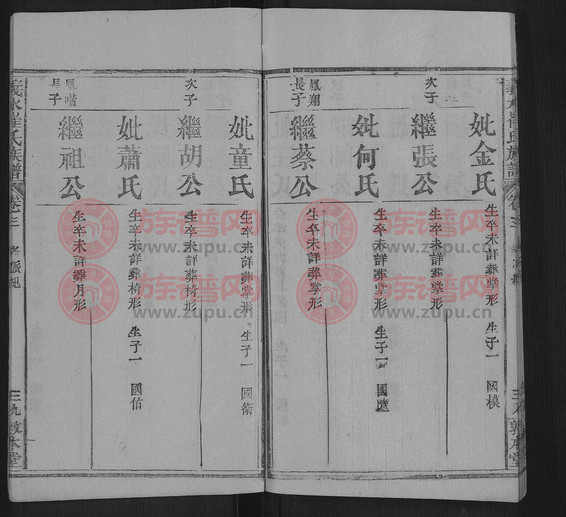 妣金氏 生卒未詳葬掌形 生子一 國模
次子
繼張公 生卒未詳葬掌形
妣何氏 生卒未詳葬掌形 生子一
鳳翔
長子
繼蔡公 生卒未詳葬掌形
妣童氏 生卒未詳葬椅形 生子一 國衛
次子
繼胡公 生卒未詳葬椅形
妣蕭氏 生卒未詳葬椅形 生子一 國佑
鳳喈
長子
繼祖公 生卒未詳葬月形
義水崔氏族譜 卷三 孝派紀 三九 敦本堂
族谱网
www.zupu.cn
族谱网
www.zupu.cn